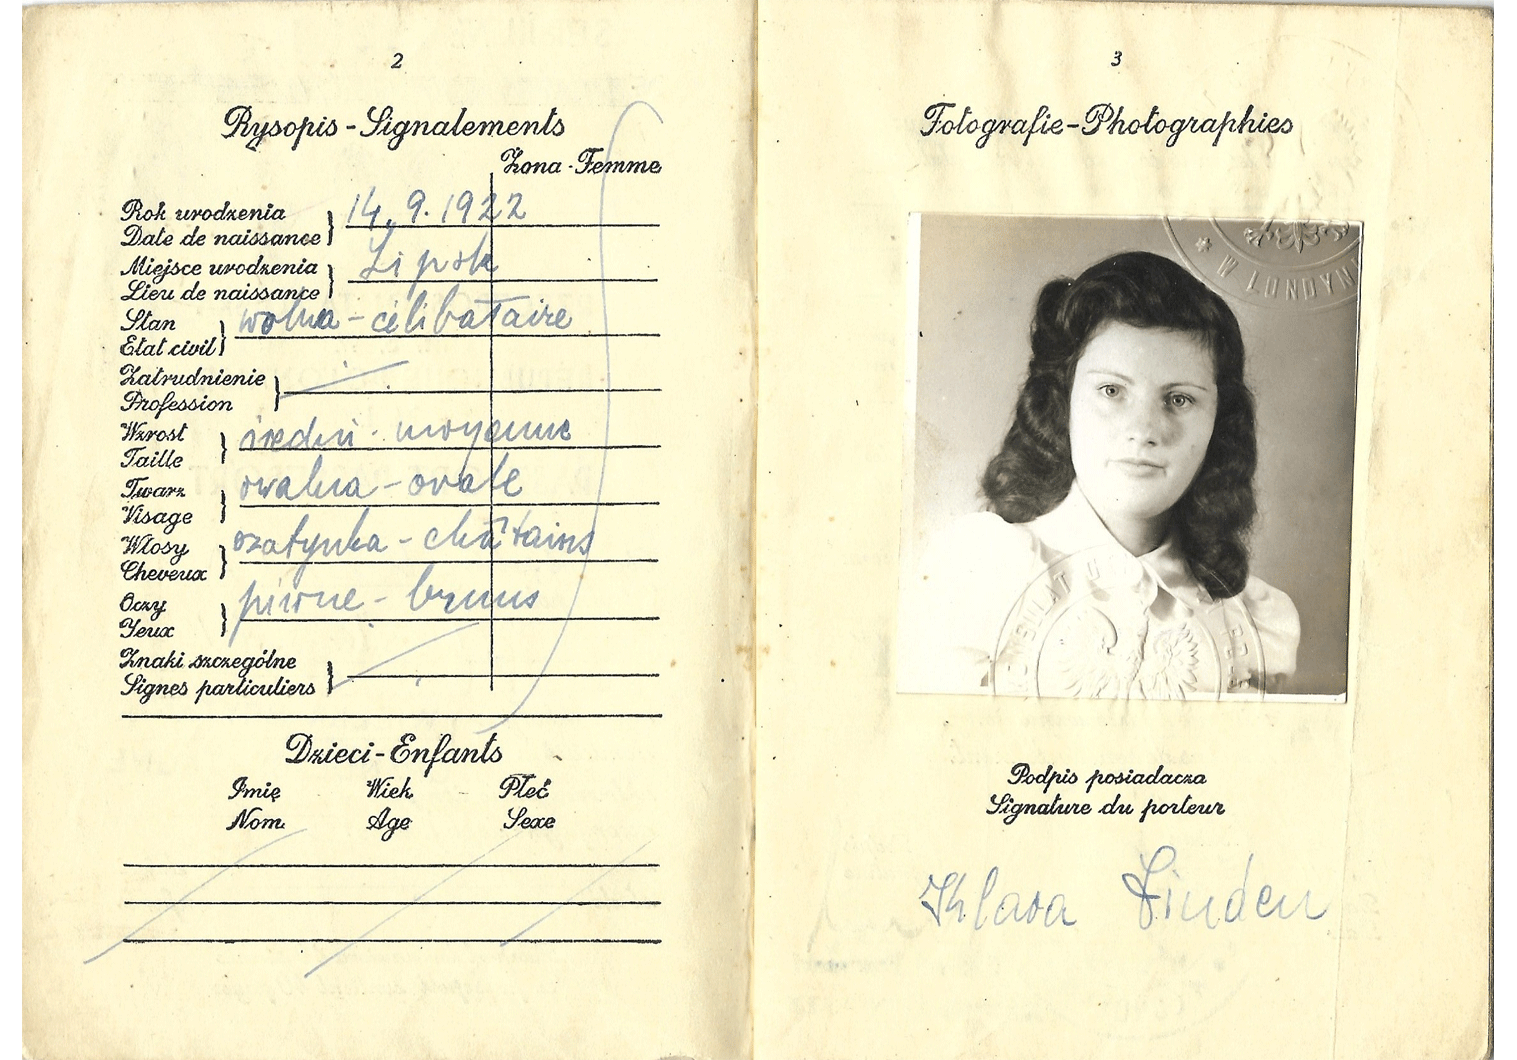 2
Rysopis - Signalements
Żona - Femme
Rok urodzenia
Date de naissance
14. 9. 1922
Miejsce urodzenia
Lieu de naissance
Lipsk
Stan
Etat civil
wolna - célibataire
Zatrudnienie
Profession
Wzrost
Taille
średni - moyenne
Twarz
Visage
owalna - ovale
Włosy
Cheveux
szatynka - châtains
Oczy
Yeux
piwne - bruns
Znaki szczególne
Signes particuliers
Dzieci - Enfants
Imię Wiek Płeć
Nom Age Sexe
3
Fotografie - Photographies
W LONDYNI
KONSULAT
Podpis posiadacza
Signature du porteur
Klara Linden